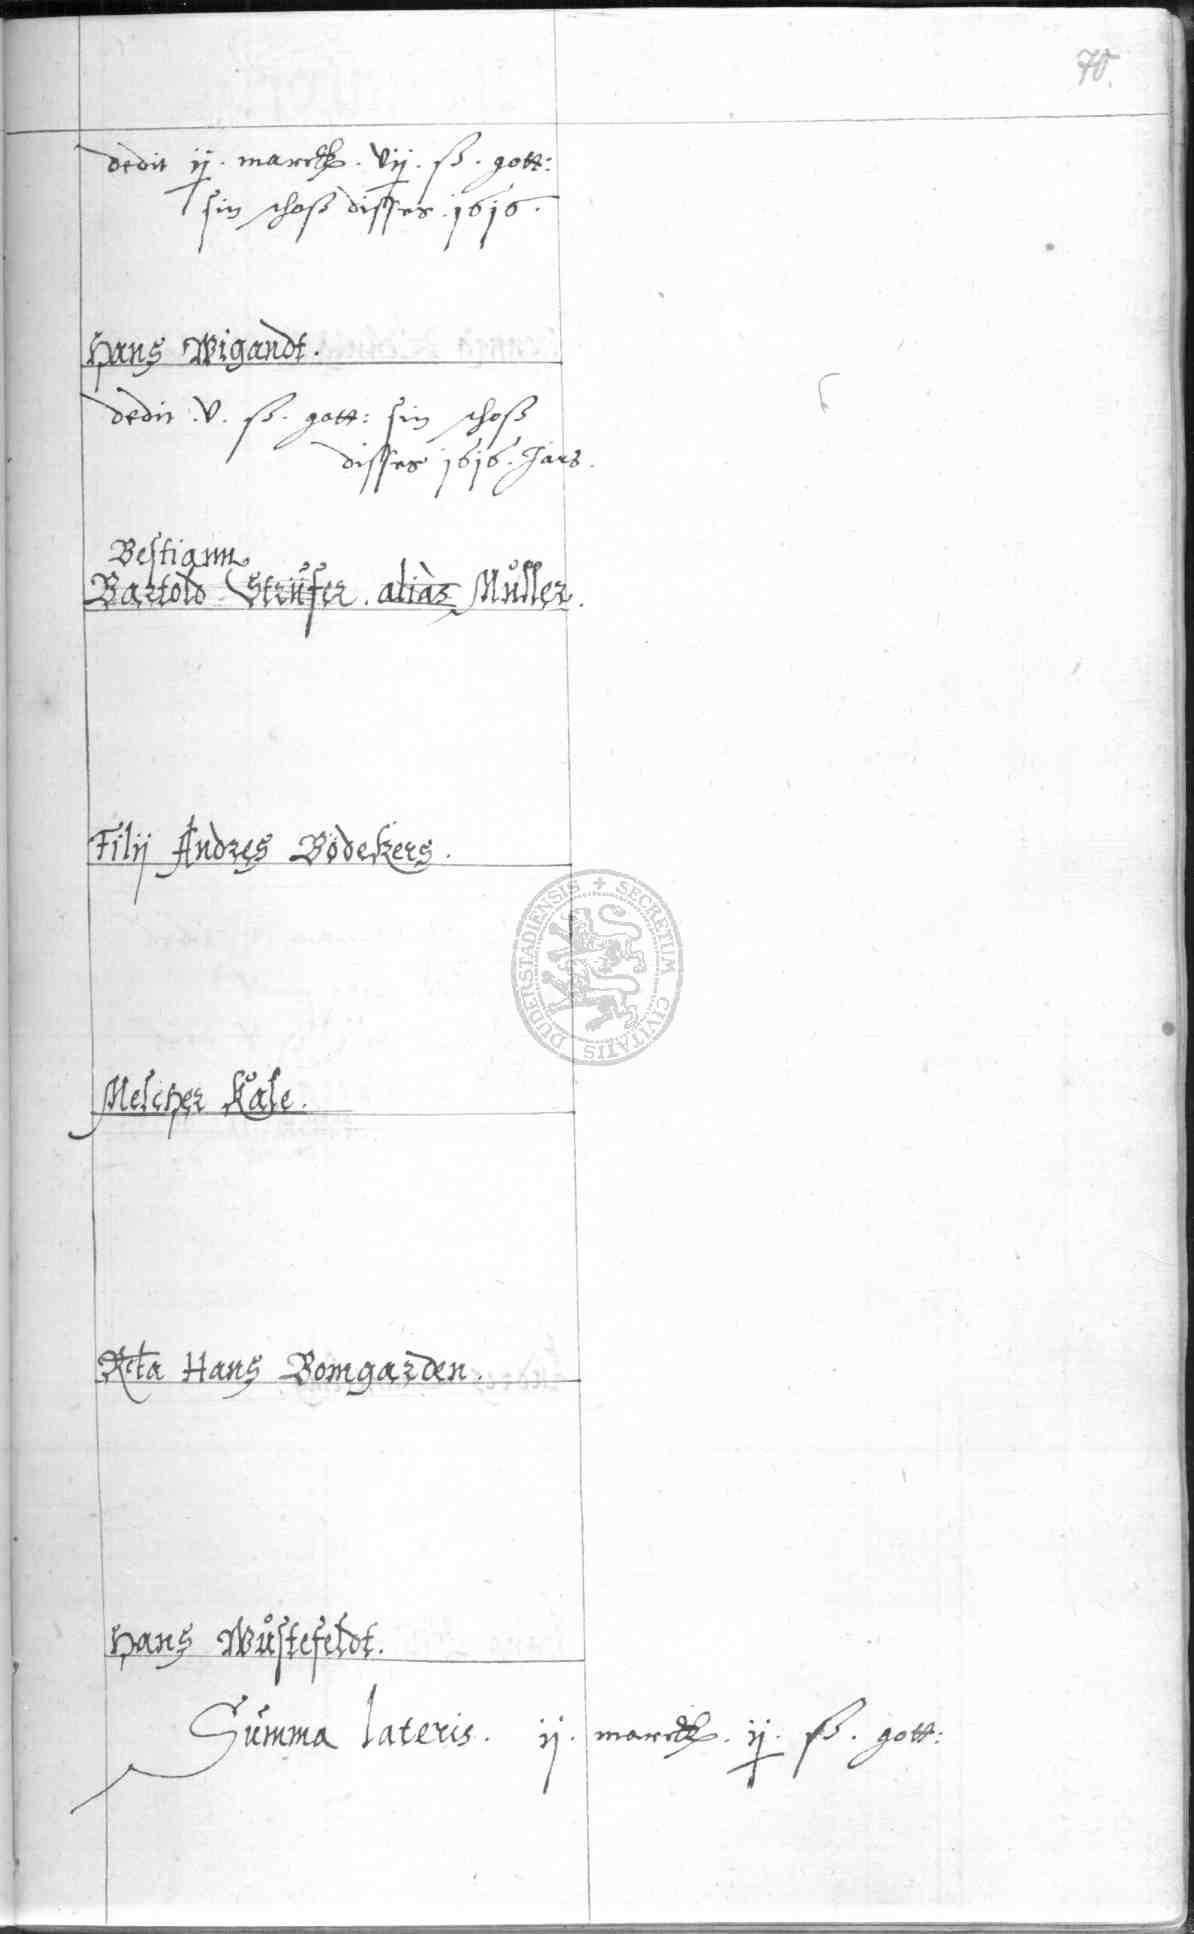 70.
dedit ij. marck. vij. ß. gott:
sin schoß disses .1616.
Hans Wigandt.
dedit .v. ß. gott: sin schoß
disses 1616. Jars.
Bestian
Bartold Strüfer. aliàs Müller.
Filij Andres Bödekers.
Melcher Kale.
Rcta Hans Bomgarden.
Hans Wůstefeldt.
Summa lateris. ij. marck. ij. ß. gott:
DUDERSTADIENSIS + SECRETUM CIVITATIS